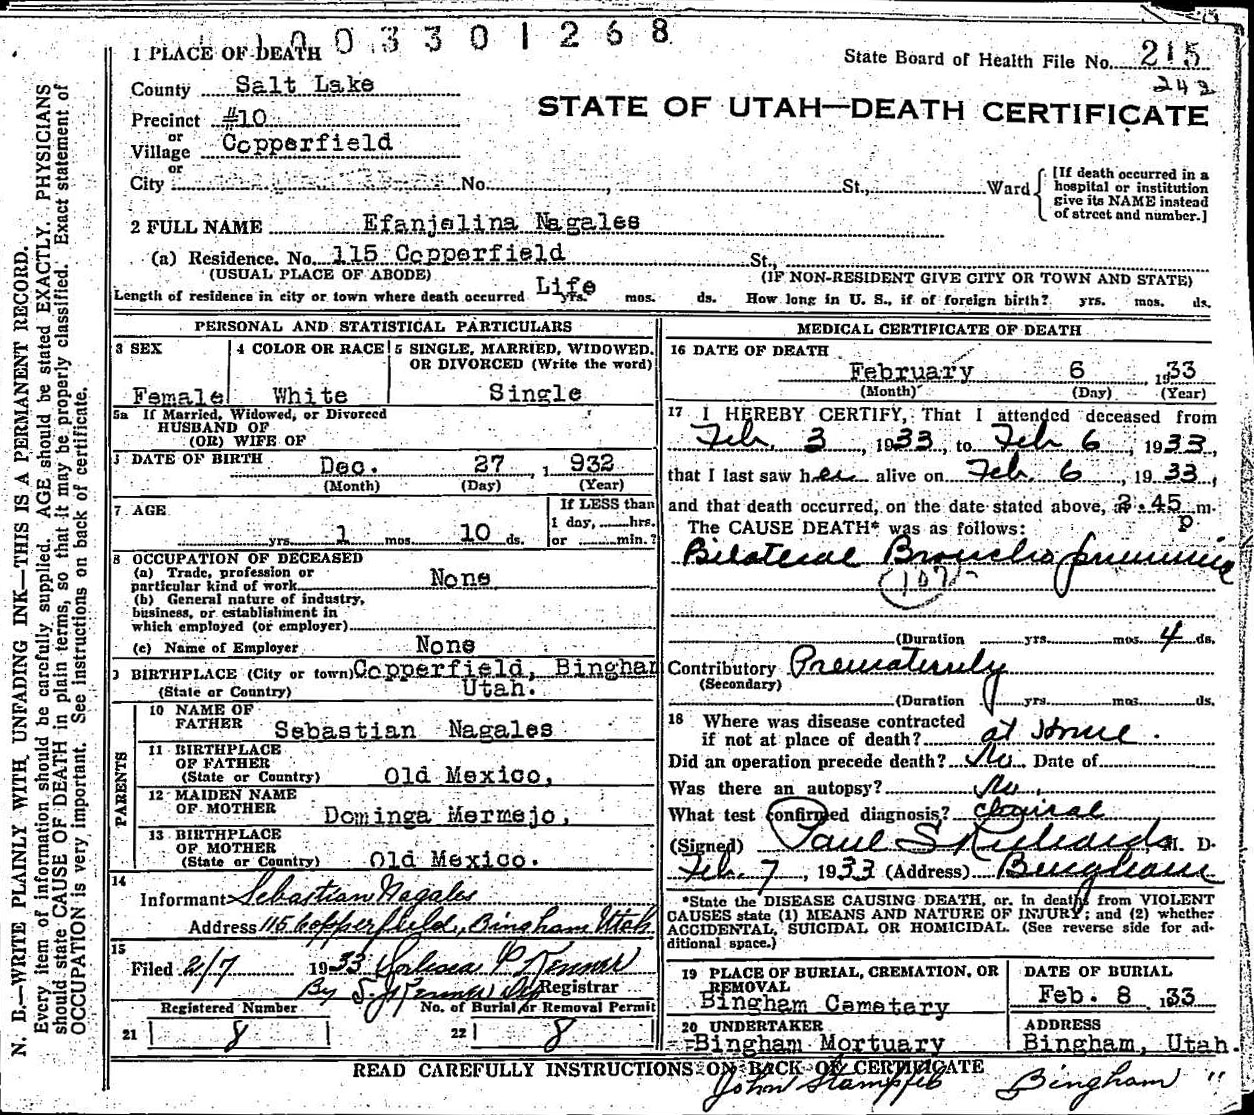 1003301268
1 PLACE OF DEATH
State Board of Health File No. 215
242
County Salt Lake
STATE OF UTAH—DEATH CERTIFICATE
Precinct #10
or
Village Copperfield
or
City No. , St., Ward
[If death occurred in a
hospital or institution
give its NAME instead
of street and number.]
2 FULL NAME Efanjelina Nagales
(a) Residence. No. 115 Copperfield St.,
(USUAL PLACE OF ABODE) (IF NON-RESIDENT GIVE CITY OR TOWN AND STATE)
Length of residence in city or town where death occurred Life yrs. mos. ds. How long in U. S., if of foreign birth? yrs. mos. ds.
PERSONAL AND STATISTICAL PARTICULARS
3 SEX
Female
4 COLOR OR RACE
White
5 SINGLE, MARRIED, WIDOWED,
OR DIVORCED (Write the word)
Single
5a If Married, Widowed, or Divorced
HUSBAND OF
(OR) WIFE OF
DATE OF BIRTH Dec. 27 , 1932
(Month) (Day) (Year)
7 AGE
yrs. 1 mos. 10 ds.
If LESS than
1 day, hrs.
or min.?
8 OCCUPATION OF DECEASED
(a) Trade, profession or
particular kind of work None
(b) General nature of industry,
business, or establishment in
which employed (or employer)
(c) Name of Employer None
9 BIRTHPLACE (City or town) Copperfield, Bingham
(State or Country) Utah.
PARENTS
10 NAME OF
FATHER Sebastian Nagales
11 BIRTHPLACE
OF FATHER
(State or Country) Old Mexico,
12 MAIDEN NAME
OF MOTHER Dominga Mermejo,
13 BIRTHPLACE
OF MOTHER
(State or Country) Old Mexico.
14
Informant Sebastian Nagales
Address 115 Copperfield, Bingham Utah
15
Filed 2/7 1933
By Registrar
Registered Number No. of Burial or Removal Permit
21 8 22 8
MEDICAL CERTIFICATE OF DEATH
16 DATE OF DEATH
February 6 1933
(Month) (Day) (Year)
17 I HEREBY CERTIFY, That I attended deceased from
Feb. 3, 1933, to Feb 6, 1933,
that I last saw her alive on Feb 6, 1933,
and that death occurred, on the date stated above, at 3:45 m.
p
The CAUSE DEATH* was as follows:
Bilateral Broncho pneumonia
(107)
(Duration yrs. mos. 4 ds.
Contributory Prematurity
(Secondary)
(Duration yrs. mos. ds.
18 Where was disease contracted
if not at place of death? at Home.
Did an operation precede death? No Date of
Was there an autopsy? No.
What test confirmed diagnosis? Clinical
(Signed) Paul S Richards M. D.
Feb. 7, 1933 (Address) Bingham
*State the DISEASE CAUSING DEATH, or in deaths from VIOLENT
CAUSES state (1) MEANS AND NATURE OF INJURY; and (2) whether
ACCIDENTAL, SUICIDAL OR HOMICIDAL. (See reverse side for ad-
ditional space.)
19 PLACE OF BURIAL, CREMATION, OR
REMOVAL
Bingham Cemetery
DATE OF BURIAL
Feb. 8 1933
20 UNDERTAKER
Bingham Mortuary
ADDRESS
Bingham, Utah.
READ CAREFULLY INSTRUCTIONS ON BACK OF CERTIFICATE
John Stampfel Bingham "
N. B.—WRITE PLAINLY WITH UNFADING INK—THIS IS A PERMANENT RECORD.
Every item of information should be carefully supplied. AGE should be stated EXACTLY. PHYSICIANS
should state CAUSE OF DEATH in plain terms, so that it may be properly classified. Exact statement of
OCCUPATION is very important. See instructions on back of certificate.